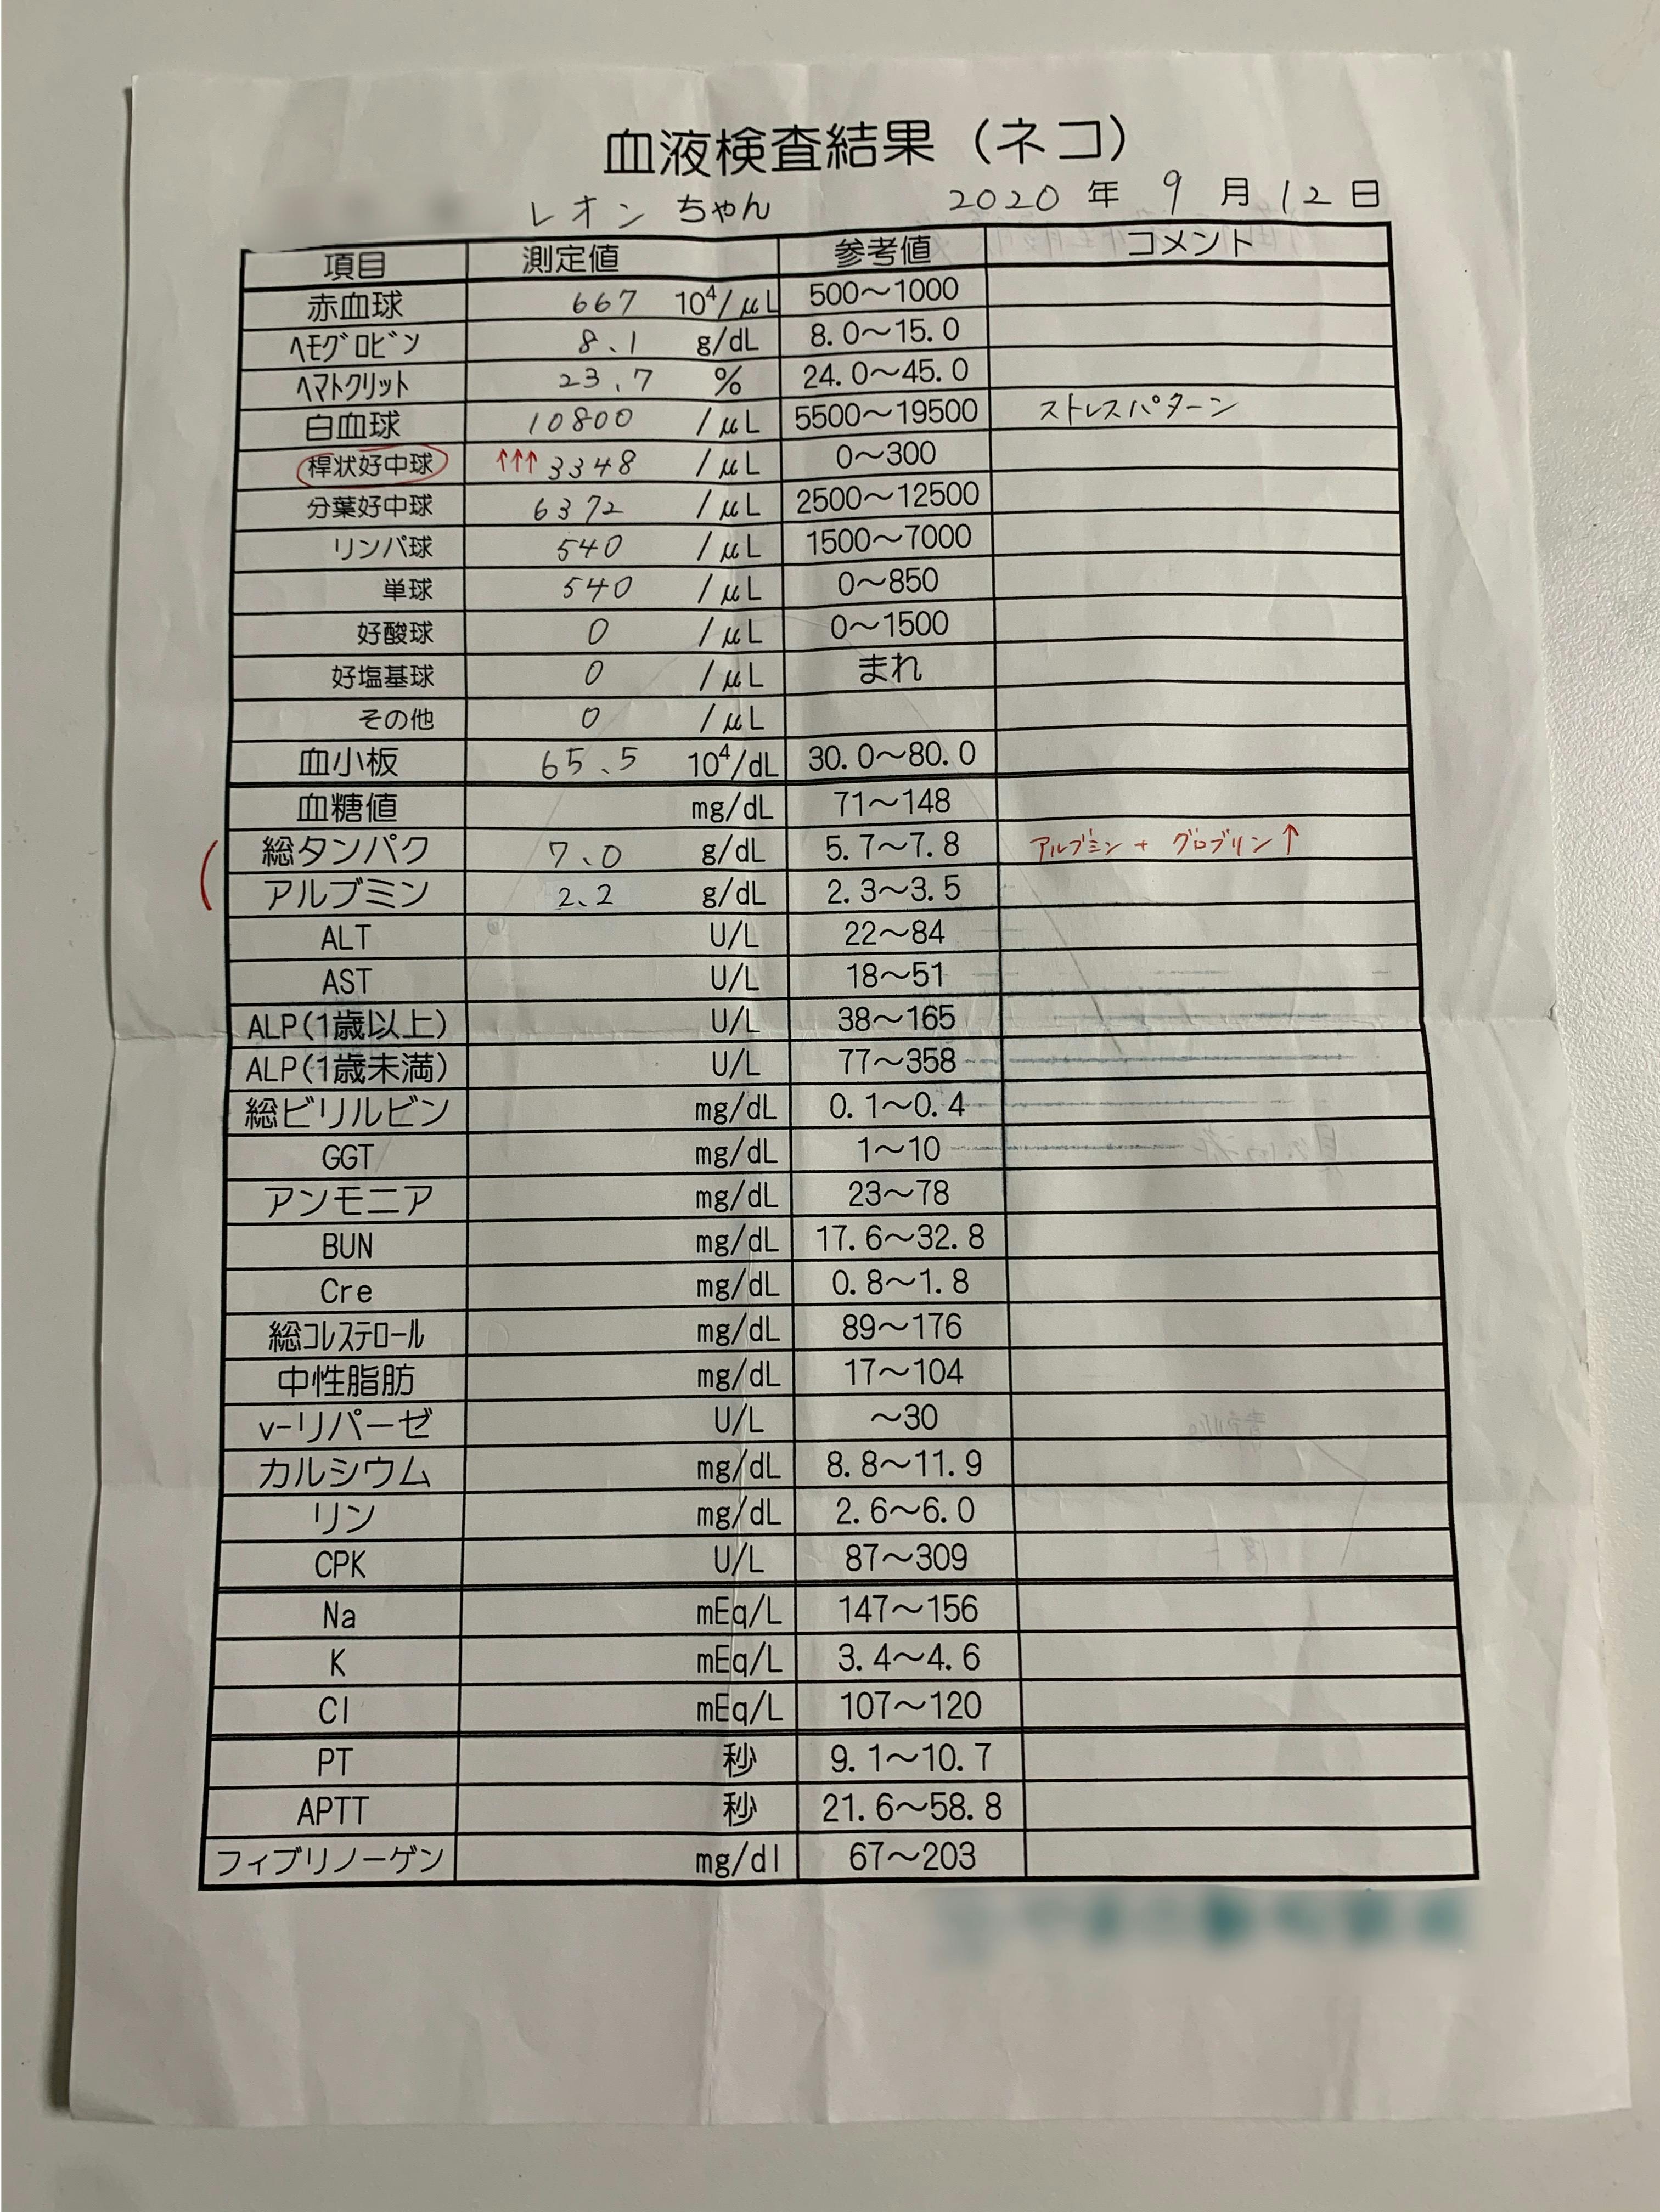 血液検査結果（ネコ）
レオン ちゃん 2020 年 9 月 12 日
項目 測定値 参考値 コメント
赤血球 667 10⁴/μL 500～1000
ﾍﾓｸﾞﾛﾋﾞﾝ 8.1 g/dL 8.0～15.0
ﾍﾏﾄｸﾘｯﾄ 23.7 % 24.0～45.0
白血球 10800 /μL 5500～19500 ストレスパターン
桿状好中球 ↑↑↑ 3348 /μL 0～300
分葉好中球 6372 /μL 2500～12500
リンパ球 540 /μL 1500～7000
単球 540 /μL 0～850
好酸球 0 /μL 0～1500
好塩基球 0 /μL まれ
その他 0 /μL
血小板 65.5 10⁴/dL 30.0～80.0
血糖値 mg/dL 71～148
総タンパク 7.0 g/dL 5.7～7.8 アルブミン + グロブリン↑
アルブミン 2.2 g/dL 2.3～3.5
ALT U/L 22～84
AST U/L 18～51
ALP(1歳以上) U/L 38～165
ALP(1歳未満) U/L 77～358
総ビリルビン mg/dL 0.1～0.4
GGT mg/dL 1～10
アンモニア mg/dL 23～78
BUN mg/dL 17.6～32.8
Cre mg/dL 0.8～1.8
総ｺﾚｽﾃﾛｰﾙ mg/dL 89～176
中性脂肪 mg/dL 17～104
v-リパーゼ U/L ～30
カルシウム mg/dL 8.8～11.9
リン mg/dL 2.6～6.0
CPK U/L 87～309
Na mEq/L 147～156
K mEq/L 3.4～4.6
Cl mEq/L 107～120
PT 秒 9.1～10.7
APTT 秒 21.6～58.8
フィブリノーゲン mg/dl 67～203